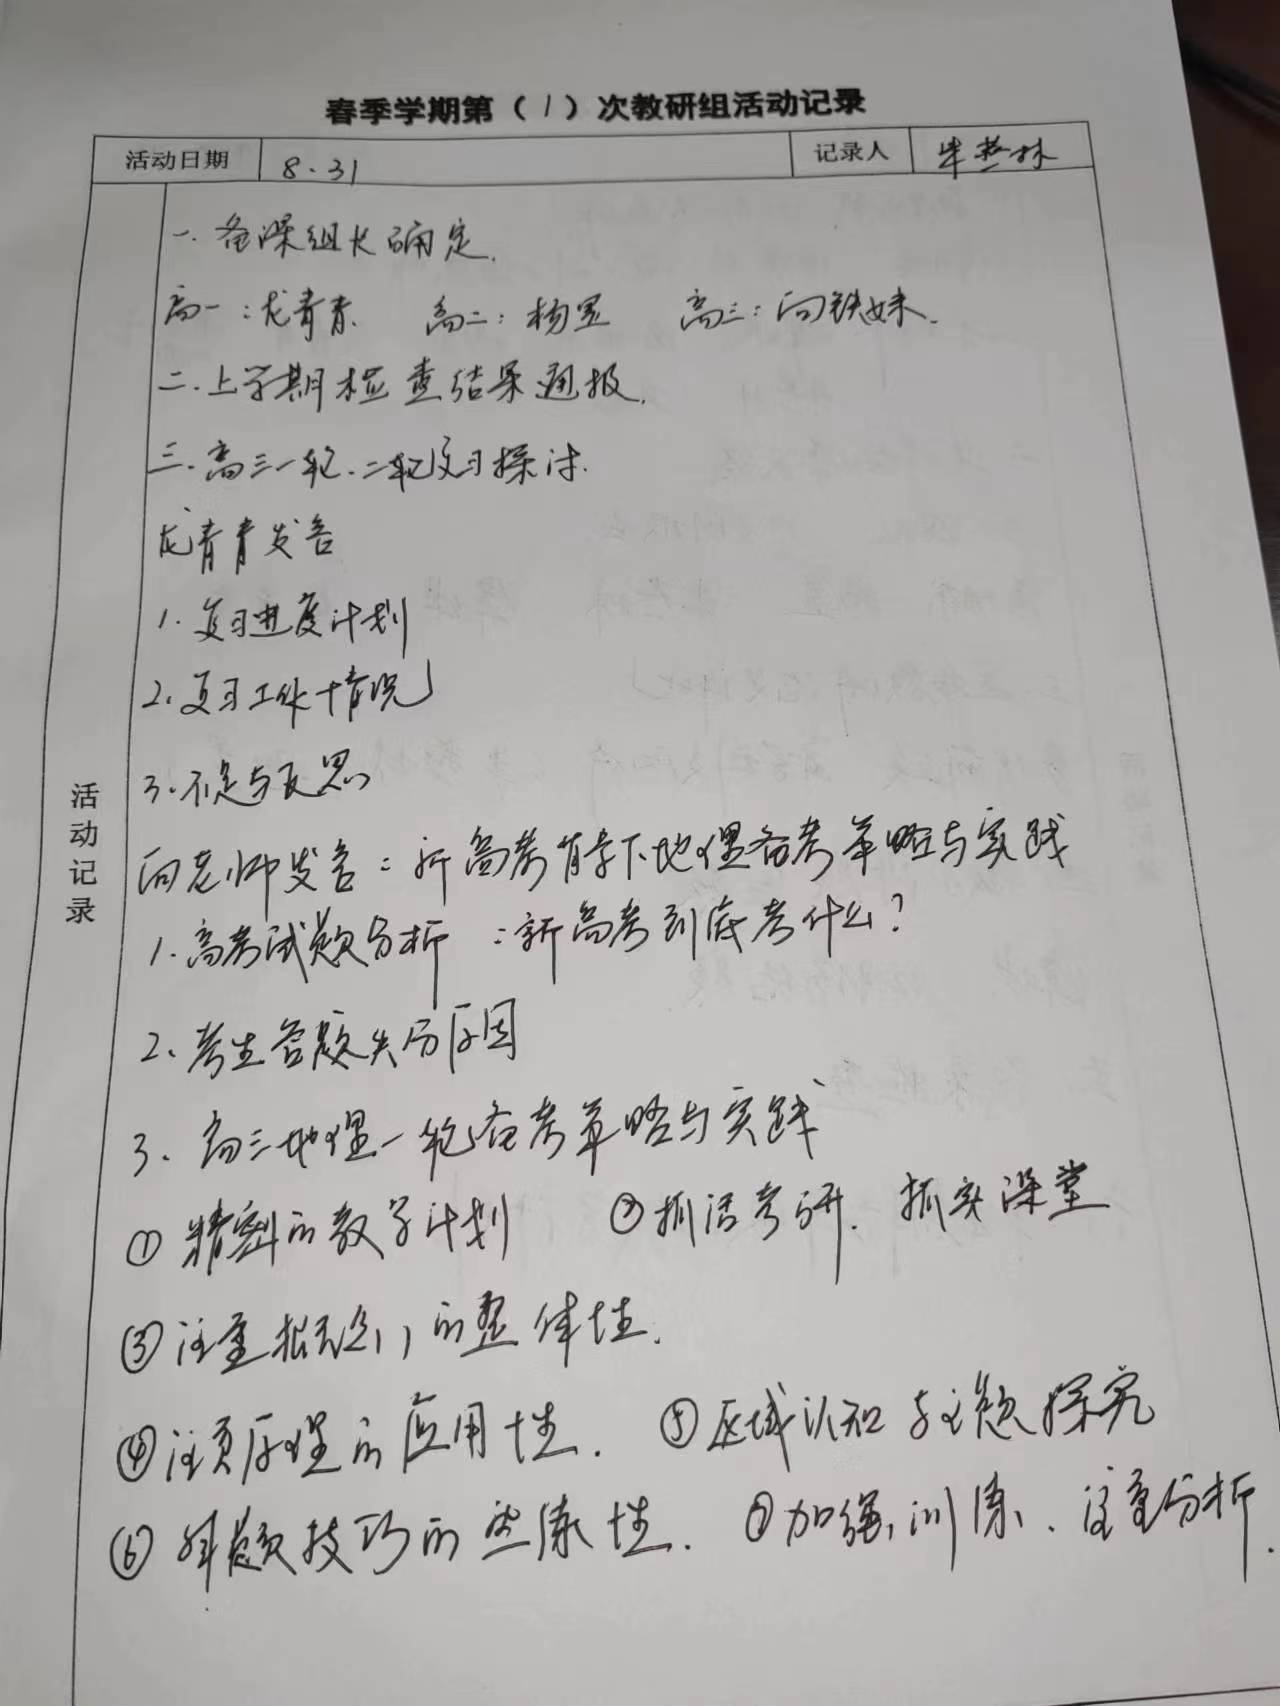 春季学期第（1）次教研组活动记录
活动日期 8.31 记录人
一.备课组长确定.
高一:龙青青. 高二:杨 高三:向铁妹.
二.上学期检查结果通报.
三.高三一轮.二轮复习探讨.
龙青青发言
1.复习进度计划
2.复习工作情况
3.不足与反思
活动记录
向老师发言:新高考背景下地理备考策略与实践
1.高考试题分析:新高考到底考什么?
2、考生答题失分原因
3、高三地理一轮备考策略与实践
①精密的教学计划 ②抓活考研.抓实课堂
③注重概念的整体性.
④注重原理的应用性. ⑤区域认知与主题探究
⑥解题技巧的 性. ⑦加强训练、注重分析.